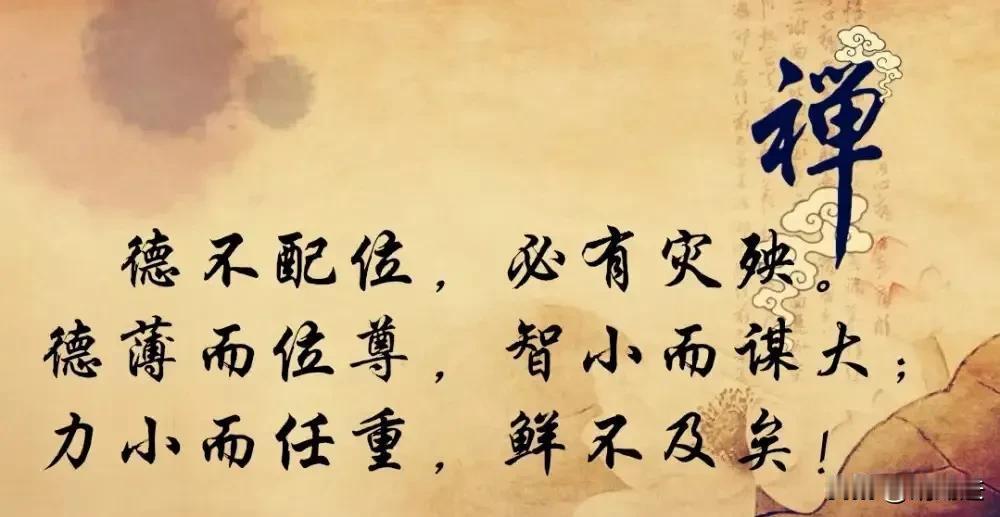 禅
德不配位，必有灾殃。
德薄而位尊，智小而谋大；
力小而任重，鲜不及矣！